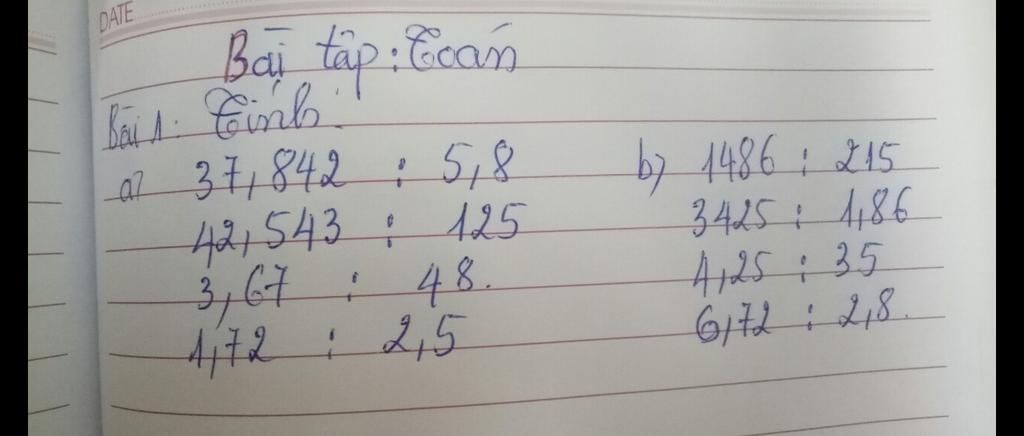 DATE
Bài tập: Toán
Bài 1: Tính:
a) 37,842 : 5,8 b) 1486 : 215
42,543 : 125 3425 : 1,86
3,67 : 48. 4,25 : 35
1,72 : 2,5 6,72 : 2,8.